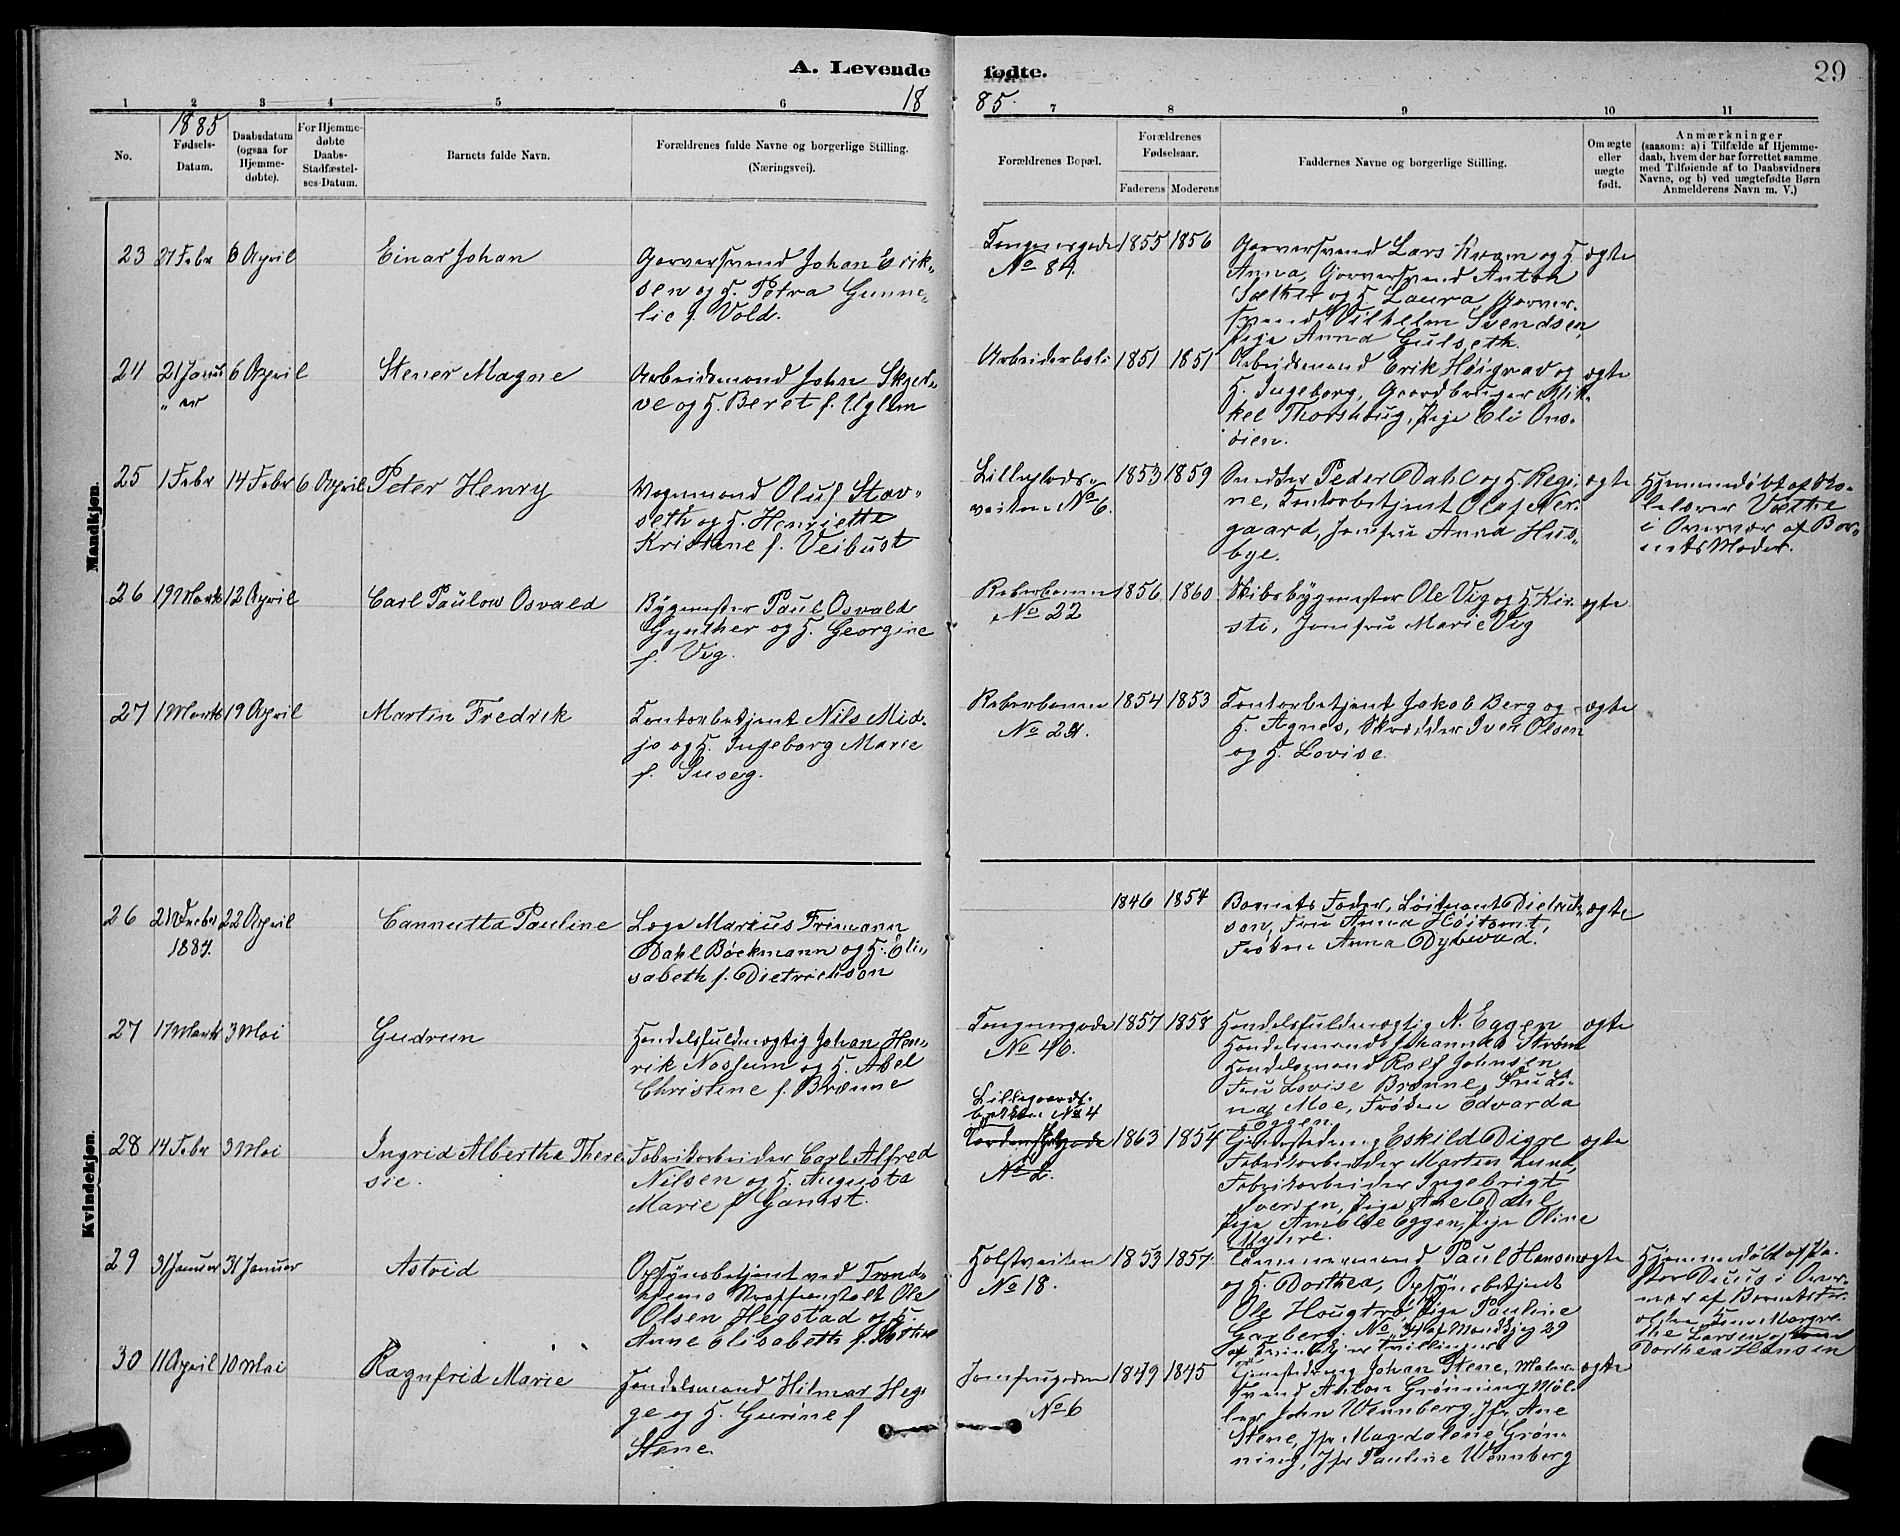 A. Levende fødte.
29
1885
1 2 3 4 5 6 7 8 9 10 11
No.
1885
Fødsels-
Datum.
Daabsdatum
(ogsaa for
Hjemme-
døbte).
For Hjemme-
døbte
Daabs-
Stadfæstel-
ses-Datum.
Barnets fulde Navn.
Forældrenes fulde Navne og borgerlige Stilling.
(Næringsvei).
Forældrenes Bopæl.
Forældrenes
Fødselsaar.
Faderens Moderens
Faddernes Navne og borgerlige Stilling.
Om ægte
eller
uægte
født.
Anmærkninger
(saasom: a) i Tilfælde af Hjemme-
daab, hvem der har forrettet samme
med Tilføiende af to Daabsvidners
Navne, og b) ved uægtefødte Børn
Anmelderens Navn m. V.)
Mandkjøn.
23 27 Febr 6 April
Einar Johan
Garversvend Johan Erik-
sen og H. Petra Gunne-
lie f. Vold.
No 84.
1855 1856
Garversvend Lars Kvam og H.
Anna, Garversvend Anton
Sæther og H Laura, Garver-
svend Vilhelm Svendsen,
Pige Anna Gulseth.
ægte
24 21 Janu 6 April
" ar
Stener Magne
Arbeidsmand John Skjer-
ve og H. Beret f. Uglem
Arbeiderboli
1851 1851
Arbeidsmand Erik Høigrav og
H. Ingeborg, Gaardbruger Mik-
kel Thorshaug, Pige Eli Ons-
øien.
ægte
25 1 Febr 14 Febr 6 April
Peter Henry
Vognmand Oluf Stav-
seth og H. Henriette
Kristine f. Veibust
veiten No 6.
1853 1859
Snedker Peder Dahl og H Regi-
ne, Kontorbetjent Olaf Ner-
gaard, Jomfru Anna Hus-
bye.
ægte
Hjemmedøbt af Sko-
lelærer Væthe
i Overvær af Bar-
nets Moder.
26 19 Marts 12 April
Carl Paulow Osvald
Bygmester Paul Osvald
Gynther og H. Georgine
f. Vig.
Reberbanen
No 22
1856 1860
Skibsbygmester Ole Vig og H Kir-
sti, Jomfru Marie Vig
ægte
27 1 Marts 19 April
Martin Fredrik
Kontorbetjent Nils Mid-
jo og H. Ingeborg Marie
f. Suseg.
Reberbanen
No 24.
1854 1853
Kontorbetjent Jakob Berg og
H. Agnes, Skrædder Iver Olsen
og H. Lovise.
ægte
Kvindekjøn.
26 22 April
1884.
Cannutta Pauline
Læge Marius Frimann
Dahl Bøckmann og H. Eli-
sabeth f. Dietrichson
1846 1854
Barnets Fader, Løitnant Dietrich-
son, Fru Anna Høitomt,
Frøken Anna Dybwad.
ægte
27 17 Marts 3 Mai
Gudrun
Handelsfuldmægtig Johan Hen-
rik Nossum og H. Abel
Christine f. Brænne
No 46.
1857 1858
Handelsfuldmægtig N. Eggen
Handelsmand Johannes Strøm
Handelsmand Rolf Johnsen
Fru Lovise Brænne, Fru Li-
na Moe, Frøken Edvarda
Eggen.
ægte
28 14 Febr 3 Mai
Ingrid Albertha There-
sie.
Fabrikarbeider Carl Alfred
Nilsen og H. Augusta
Marie f Gaust.
Lillegaards-
bakken No 4
Tordenskjoldsgade
No 2.
1863 1854
Eskild Digre
Fabrikarbeider Marten Lund,
Fabrikarbeider Ingebrigt
Iversen, Pige Ane Dahl
Pige Amalie Eggen, Pige Oline
Myhre.
ægte
29 31 Januar 31 Januar
Astrid
Opsynsbetjent ved Trond-
hjems Straffeanstalt Ole
Olsen Hegstad og H.
Anne Elisabeth f.
Holstveiten
No 18.
1853 1857
Tømmermand Paul Hansen
og H. Dorthea, Opsynsbetjent
Ole Haugtrø, Pige Pauline
Garberg.
ægte
Hjemmedøbt af Pa-
stor Duus i Over-
vær af
Margre-
the Larsen og
Dorthea Hansen
30 11 April 10 Mai
Ragnfrid Marie
Handelsmand Hilmar Heg-
ge og H. Gurine f
Stene.
Jomfrugaden
No 6
1849 1845
Johan Stene, Maler-
svend Anton Grønning, Møl-
ler John Wennberg, Jfr Ane
Stene, Jfr Magdalene Grøn-
ning, Jfr Pauline Wennberg
ægte